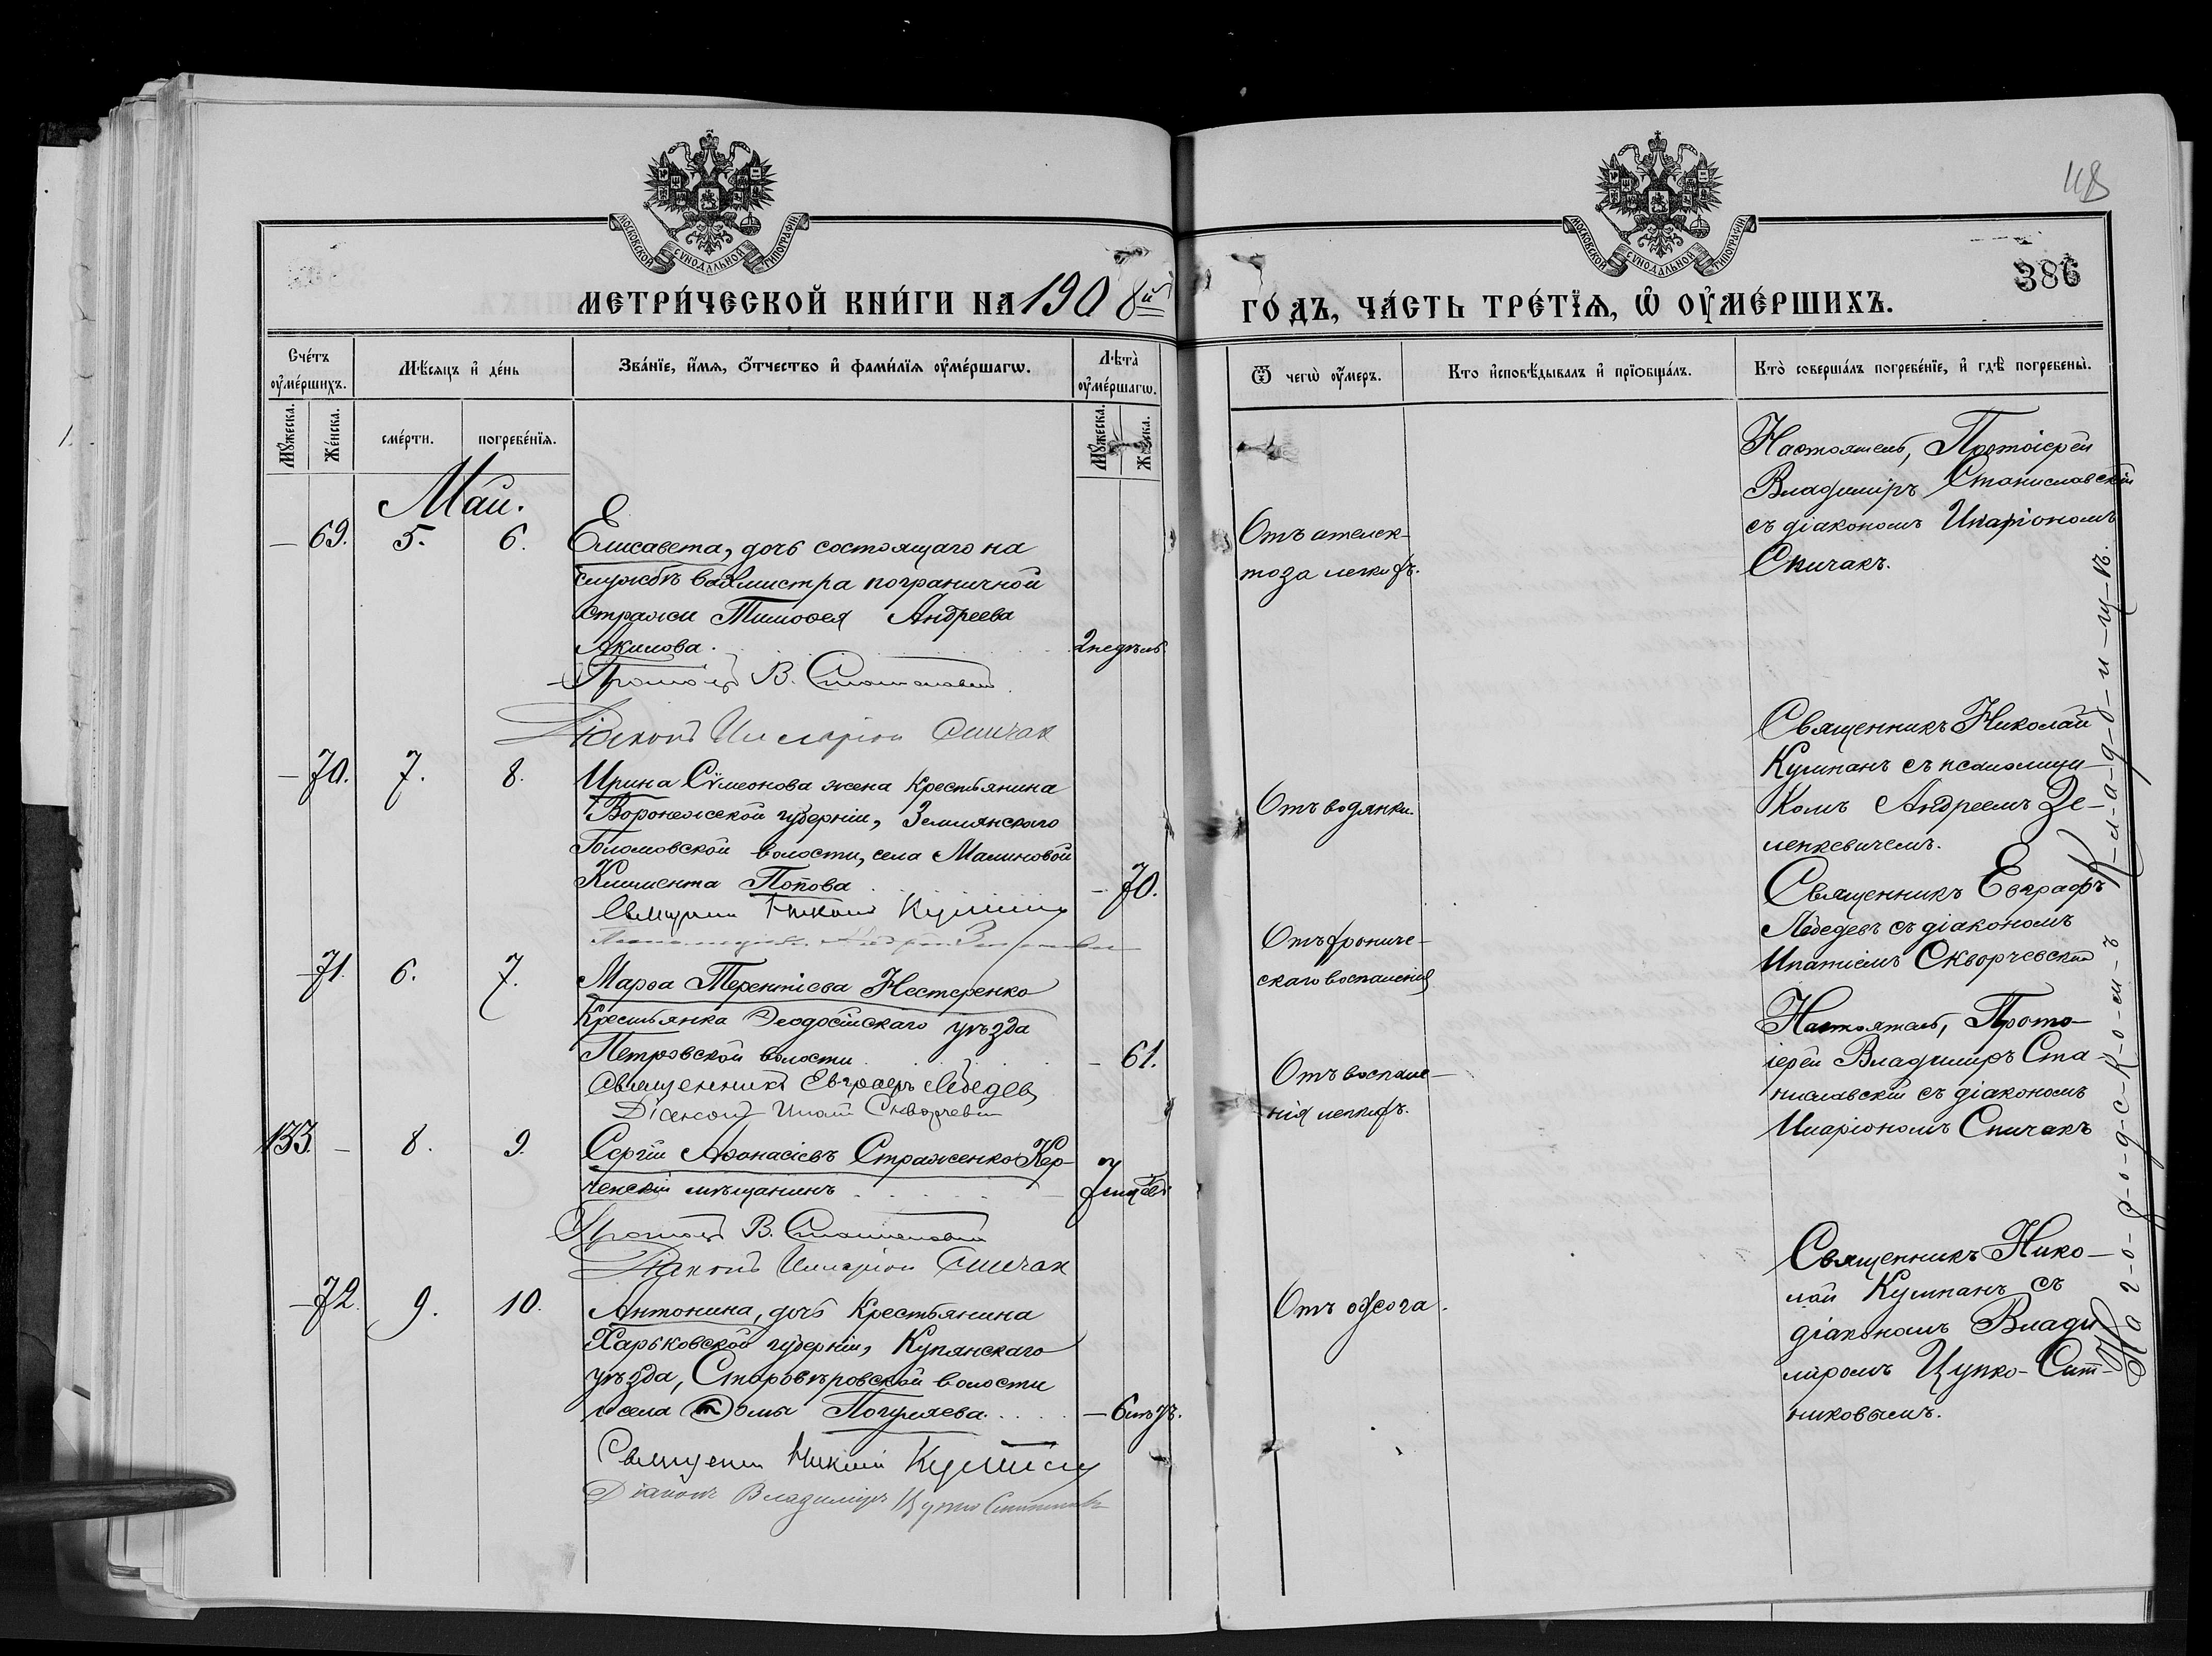 118
МОСКОВСКОЙ СѴНОДАЛЬНОЙ ТИПОГРАФІИ
МОСКОВСКОЙ СѴНОДАЛЬНОЙ ТИПОГРАФІИ
386
МЕТРИ́ЧЕСКОЙ КНИ́ГИ НА 1908й
ГО́ДЪ, ЧА́СТЬ ТРЕ́ТЇѦ, Ѡ҆ ОУ҆МЕ́РШИХЪ.
Сче́тъ оу҆ме́ршихъ.
Мꙋ́жеска.
Же́нска.
Мѣ́сяцъ и҆ де́нь
сме́рти.
погребе́нїѧ.
Зва́нїе, и҆́мѧ, ѻ҆́тчество и҆ фами́лїѧ оу҆ме́ршагѡ.
Лѣ́та оу҆ме́ршагѡ.
Мꙋ́жеска.
Же́нска.
Ѿ чегѡ̀ оу҆́меръ.
Кто̀ и҆сповѣ́дывалъ и҆ прїѡбща́лъ.
Кто̀ соверша́лъ погребе́нїе, и҆ гдѣ̀ погребены̀.
Май.
— 69. 5. 6.
Елисавета, дочь состоящаго на
службѣ вахмистра пограничной
стражи Тимоѳея Андреева
Акилова.
2 недѣль
Протоіер В. Станиславскій
Діаконъ Иларіон Спичак
Отъ ателек-
тоза легкихъ.
Настоятель, Протоіерей
Владиміръ Станиславскій
съ діакономъ Иларіономъ
Спичакъ.
— 70. 7. 8.
Ирина Сѵмеонова жена крестьянина
Воронежской губерніи, Землянскаго
волости, села Малиновой
Климента Попова
— 70.
Священник Николай Кулпан
Отъ водянки.
Священникъ Николай
Кулпанъ съ псаломщи-
комъ Андреемъ Зе-
ленкевичемъ.
— 71. 6. 7.
Марѳа Терентіева Нестеренко
Крестьянка Ѳеодосійскаго уѣзда
Петровской волости
— 61.
Священникъ Евграфъ Лебедев
Діакон Ипатій Скворчевскій
Отъ хрониче-
скаго воспаленія
Священникъ Евграфъ
Лебедевъ съ діакономъ
Ипатіемъ Скворчевскій
133. — 8. 9.
Сергій Аѳанасіевъ Страженко Кер-
ченскій мѣщанинъ
7 мѣсяц
Протоіер В. Станиславскій
Діаконъ Иларіон Спичак
Отъ воспале-
нія легкихъ.
Настоятель, Прото-
іерей Владиміръ Ста-
ниславскій съ діакономъ
Иларіономъ Спичакъ
— 72. 9. 10.
Антонина, дочь крестьянина
Харьковской губерніи, Купянскаго
уѣзда, Старовѣровской волости
и села Ѳомы Погуляева
— 6 мѣс.
Священник Николай Кулпан
Діаконъ Владиміръ Цупко Ситников
Отъ ожога.
Священникъ Нико-
лай Кулпанъ съ
діакономъ Влади
міромъ Цупко-Сит-
никовымъ.
На г-о-р-о-д-с-к-о-м-ъ к-л-а-д-б-и-щ-ѣ.